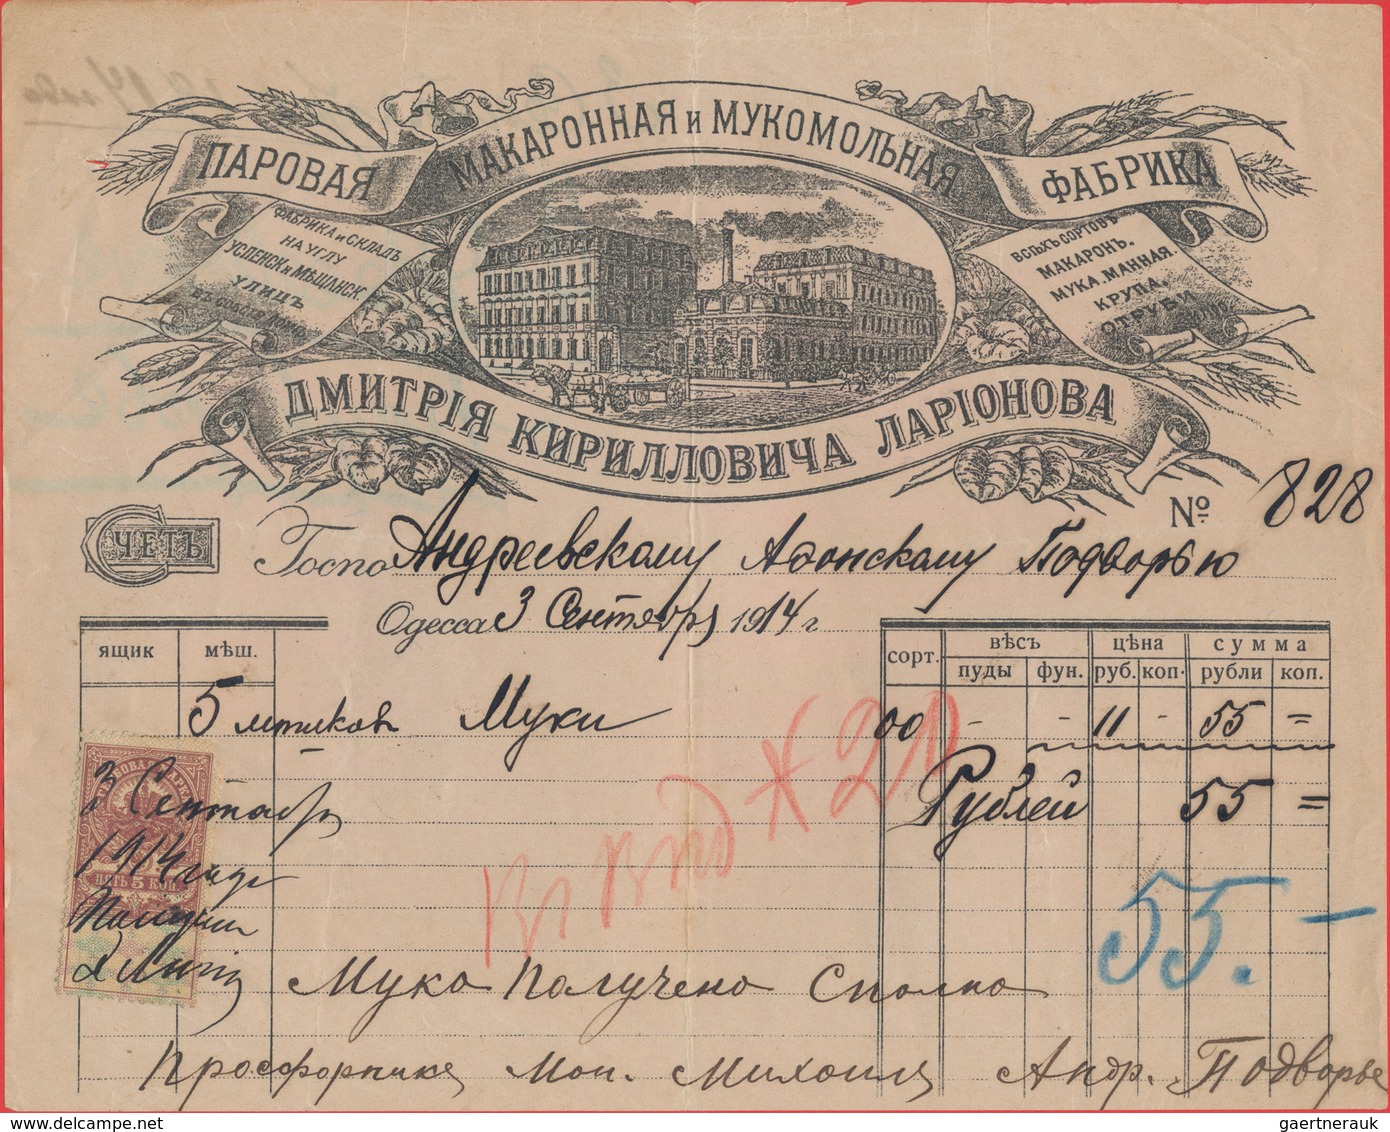 ПАРОВАЯ МАКАРОННАЯ и МУКОМОЛЬНАЯ ФАБРИКА
ФАБРИКА и СКЛАДЪ
НА УГЛУ
УСПЕНСК. и МѢЩАНСК.
УЛИЦЪ
ВСѢХЪ СОРТОВЪ
МАКАРОНЪ,
МУКА МАННАЯ
КРУПА,
ОТРУБИ
ДМИТРІЯ КИРИЛЛОВИЧА ЛАРІОНОВА
№ 828
СЧЕТЪ
Госпо Андреевскому Афонскому Подворью
Одесса 3 Сентября 1914 г.
ящик мѣш. сорт. вѣсъ цѣна сумма
пуды фун. руб. коп. рубли коп.
5 мешков Муки 00 - - 11 - 55 =
Рублей 55 =
3 Сентябр
1914 года
ПЯТЬ 5 КОП.
55.-
Мука Получено Сполна
Просфорник Мон. Михаил Андр. Подворье
gaertnerauk @ delcampe.net